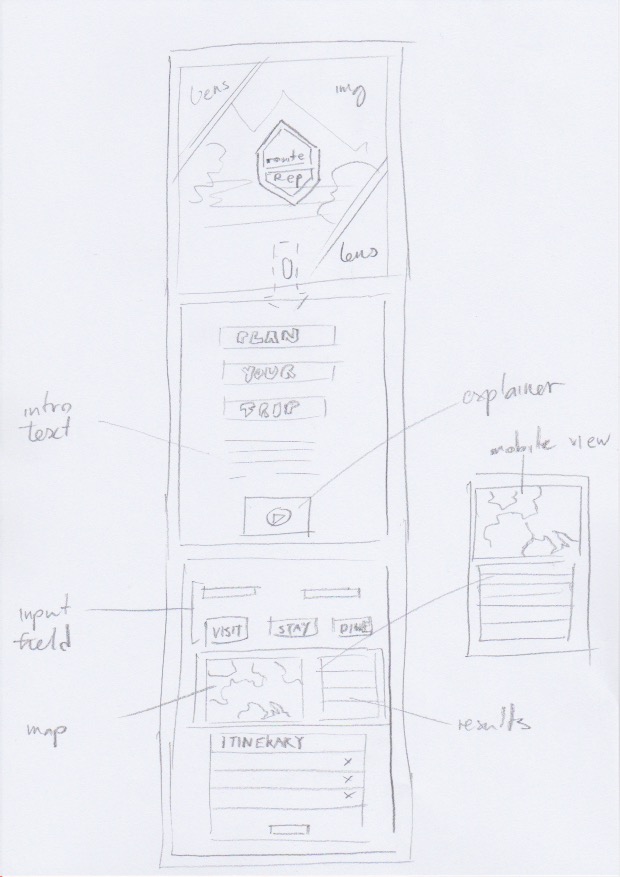 lens
img
route
Rep
lens
PLAN
YOUR
TRIP
intro
text
explainer
mobile view
input
field
VISIT
STAY
DINE
map
results
ITINERARY
x
x
x